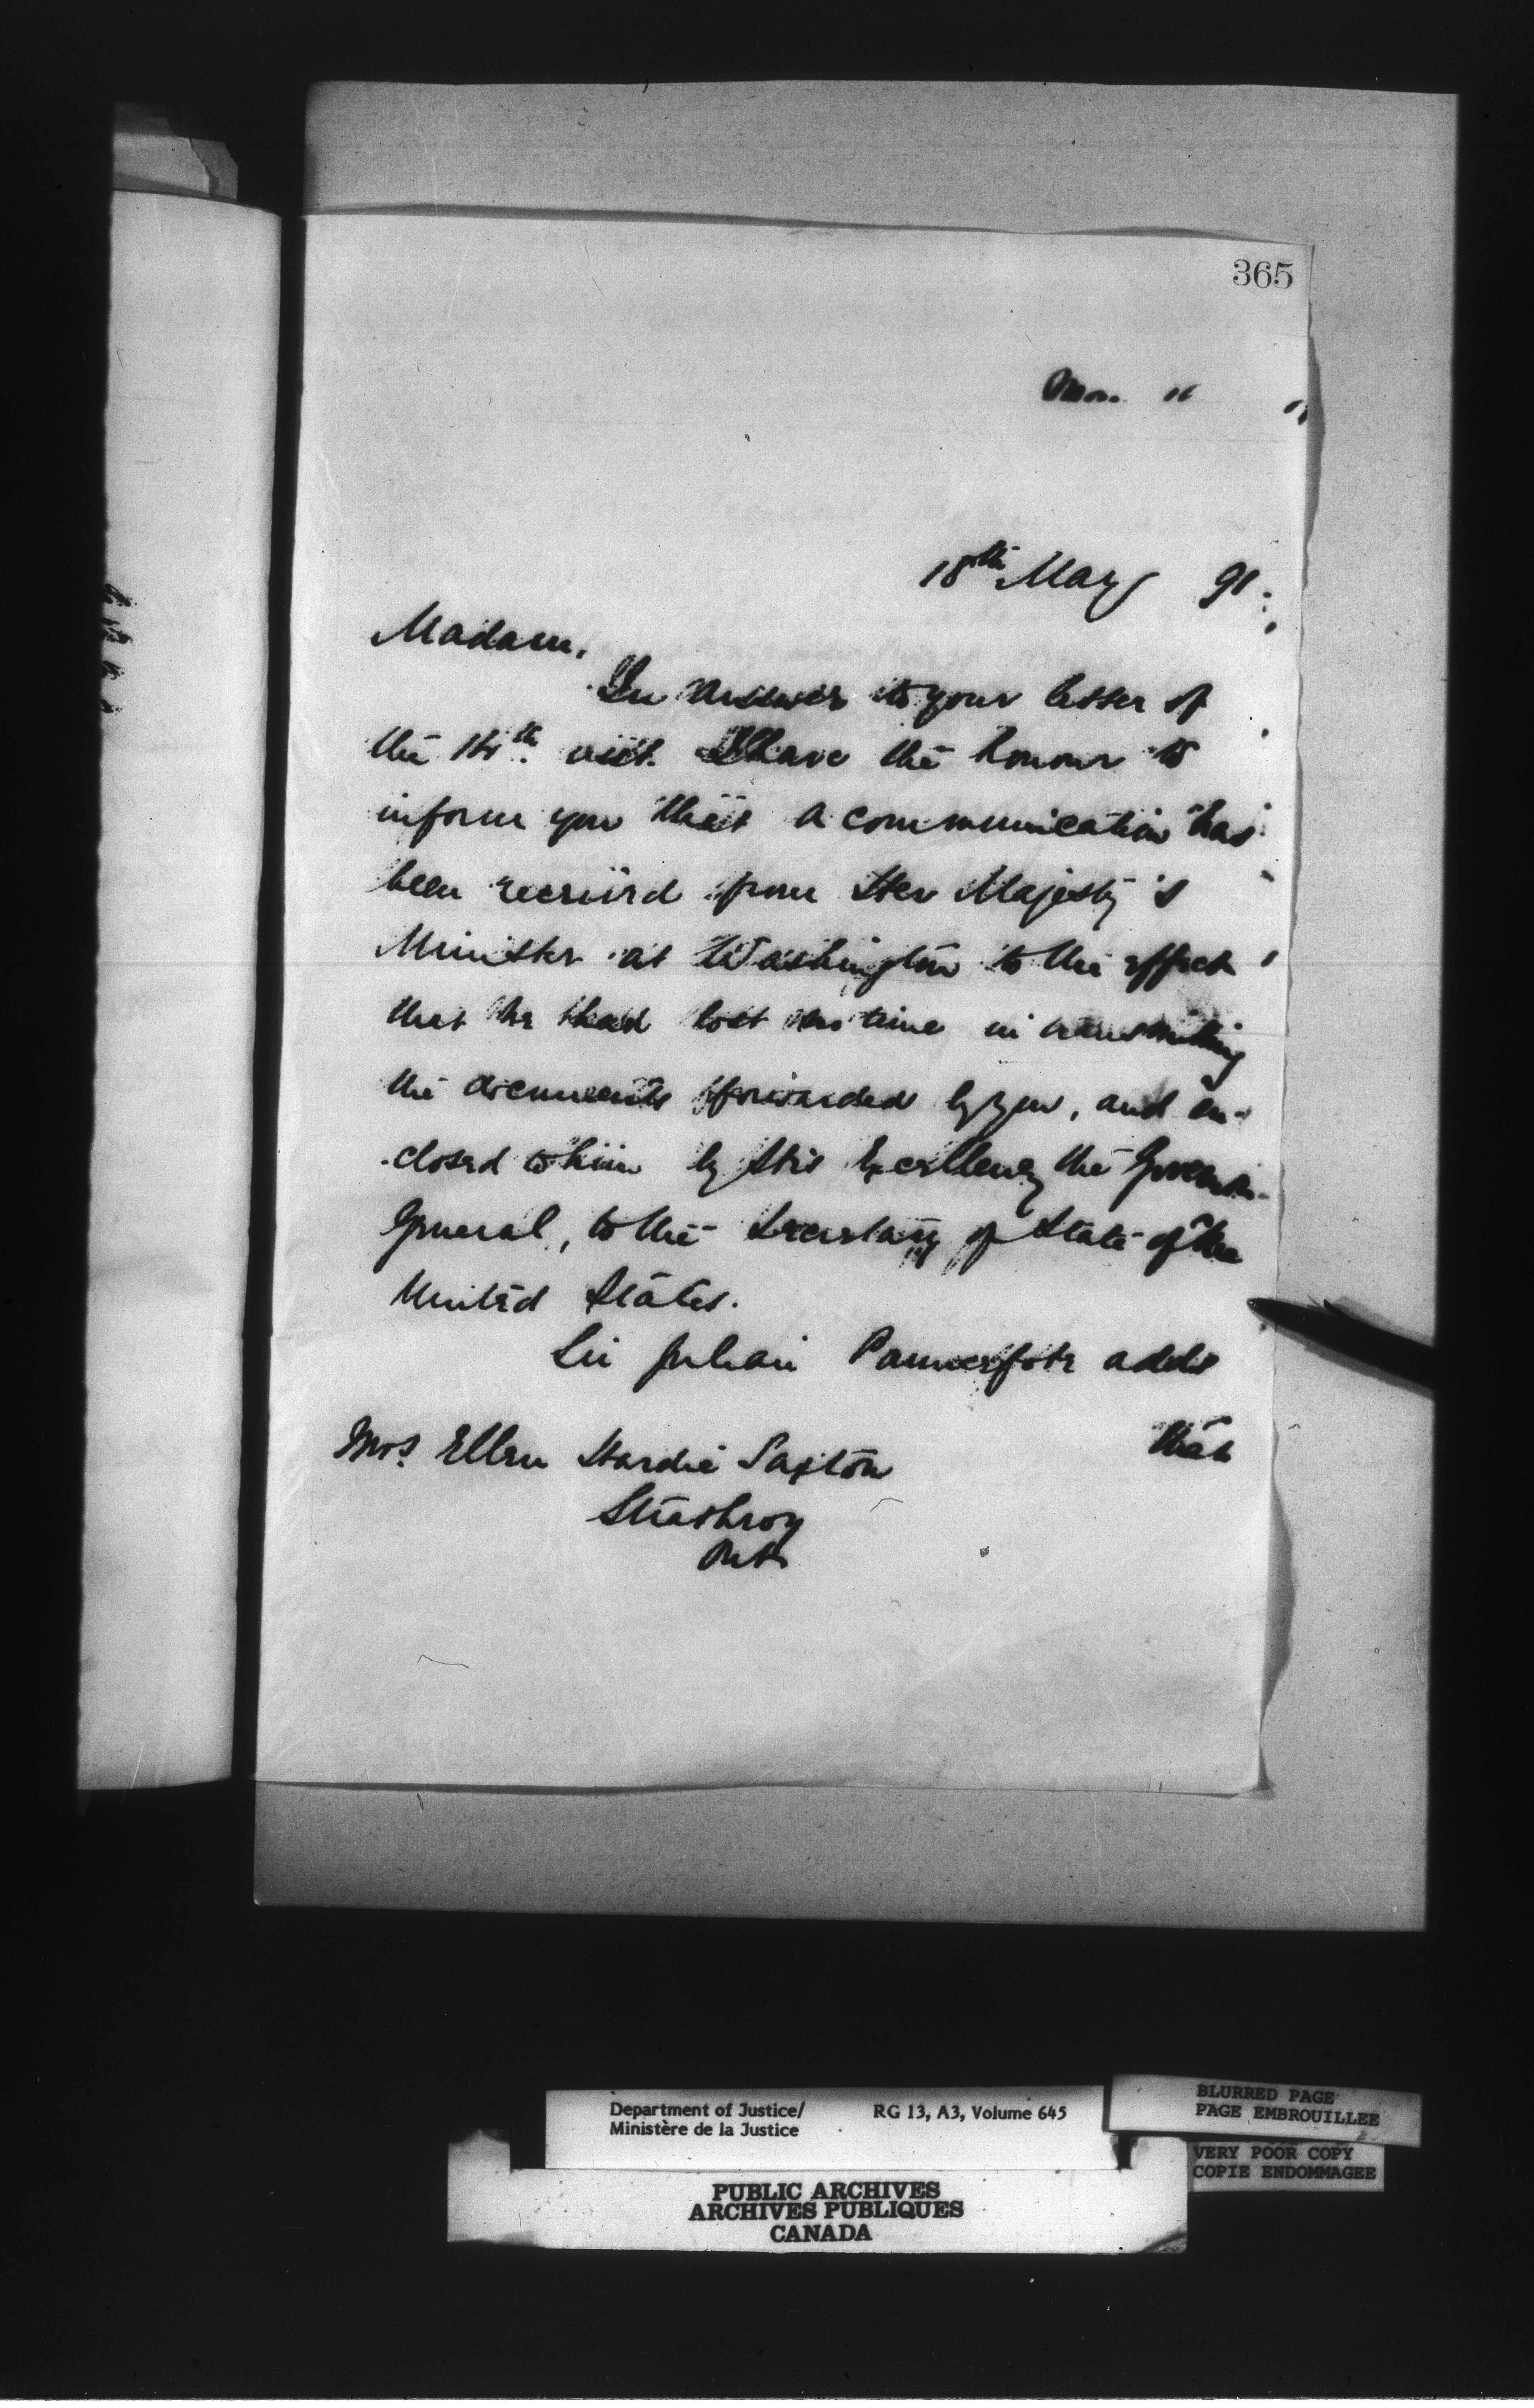 365
18th May 91
Madam,
In answer to your letter of
the 14th inst. I have the honour to
inform you that a communication has
been received from Her Majesty's
Minister at Washington to the effect
that he had lost no time in transmitting
the documents forwarded by you, and en-
closed to him by His Excellency the Governor
General, to the Secretary of State of the
United States.
Sir Julian Pauncefote adds
that
Mrs. Ellen Hardie Saxton
Strathroy
Ont
Department of Justice/ RG 13, A3, Volume 645
Ministère de la Justice
BLURRED PAGE
PAGE EMBROUILLEE
VERY POOR COPY
COPIE ENDOMMAGEE
PUBLIC ARCHIVES
ARCHIVES PUBLIQUES
CANADA